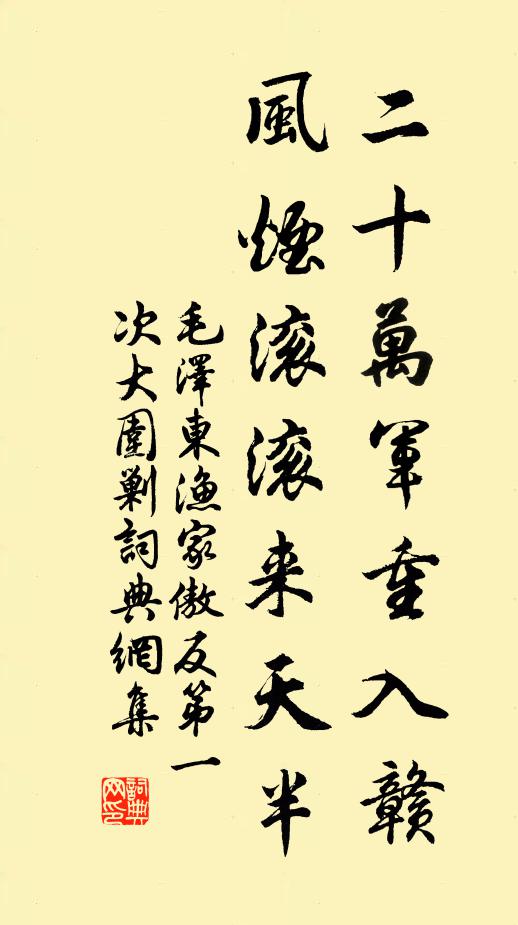 二十萬軍重入贛
風煙滾滾来天半
毛澤東漁家傲反第一
次大圍剿詞典網集
詞典
网印